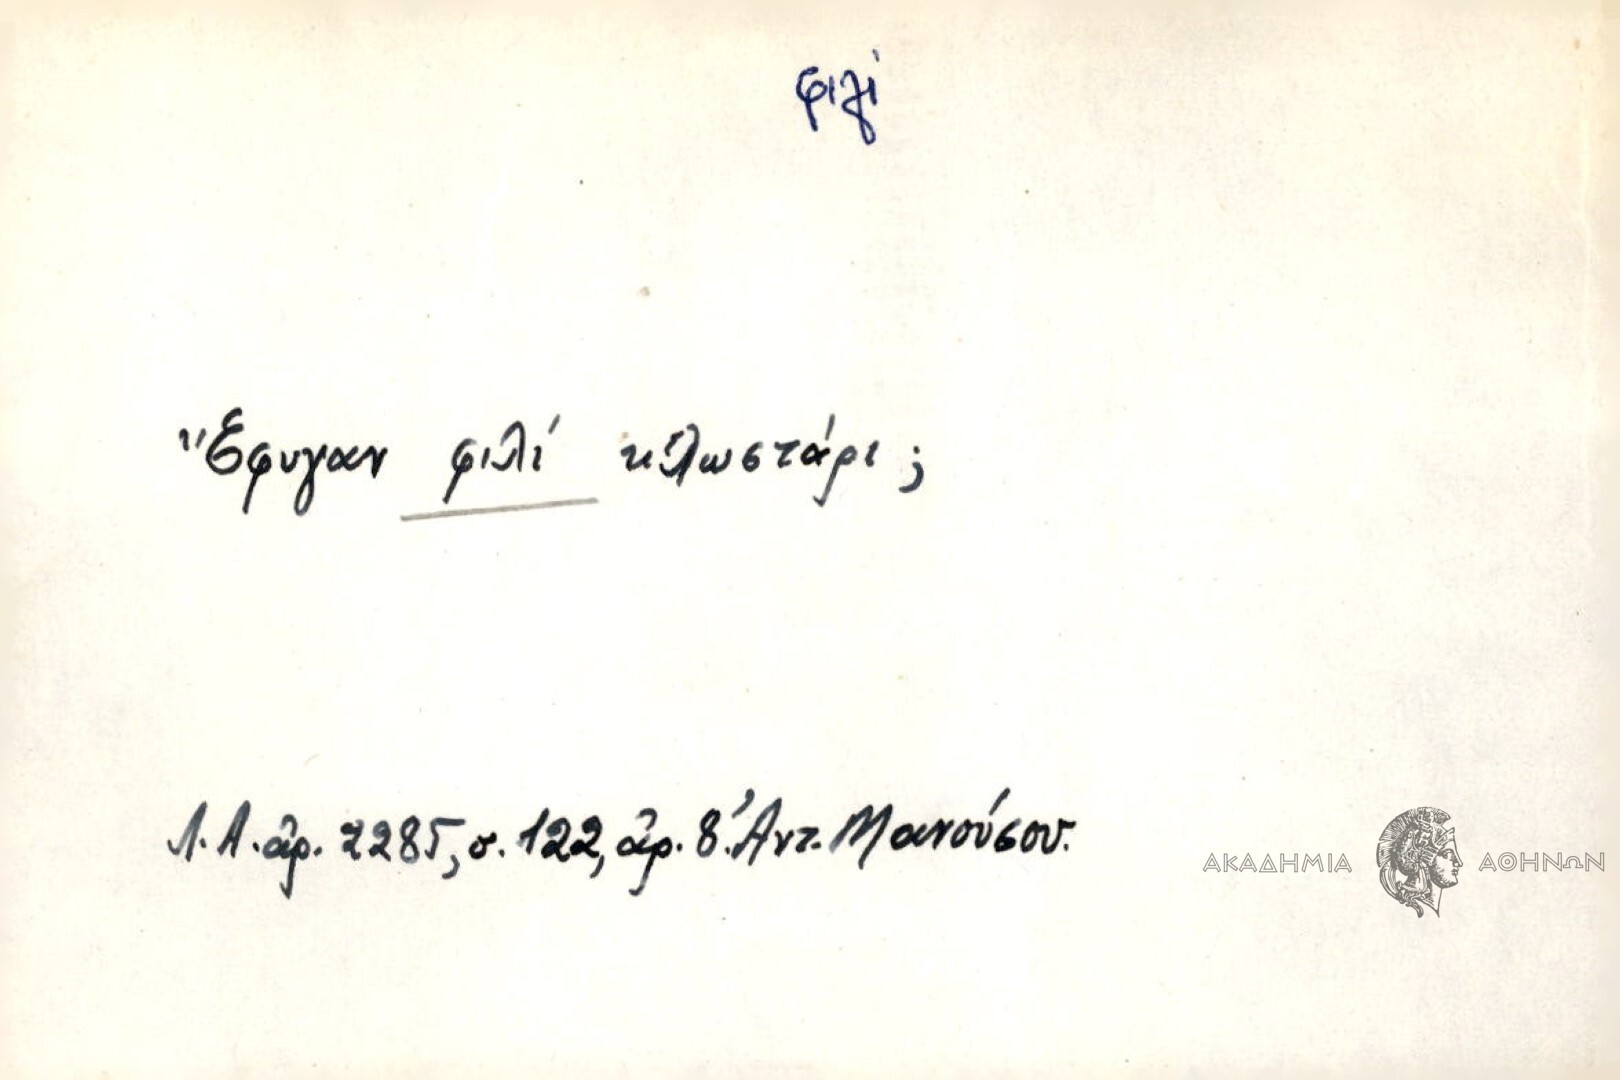 φιλί
Ἔφυγαν φιλί κλωστάρι;
Λ.Α. ἀρ. 2285, σ. 122, ἀρ. 8. Ἀντ. Μανούσου.
ΑΚΑΔΗΜΙΑ ΑΘΗΝΩΝ